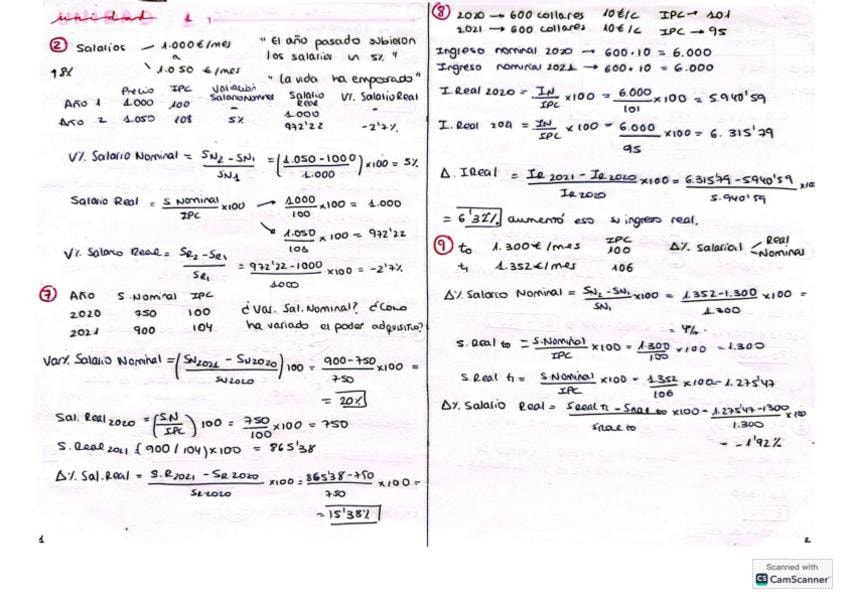 unidad 1.
② Salarios — 1.000€/mes "El año pasado subieron
a los salarios un 5%"
18% 1.050 €/mes
"La vida ha empeorado"
Precio IPC Variación Salario Nominal Salario Real V% Salario Real
Año 1 1.000 100 - 1.000 -
Año 2 1.050 108 5% 972'22 -2'7%
V% Salario Nominal = SN2 - SN1 / SN1 = (1.050-1000 / 1.000) x100 = 5%
Salario Real = S Nominal / IPC x100 → 1.000 / 100 x100 = 1.000
↘ 1.050 / 108 x100 = 972'22
V% Salario Real = SR2 - SR1 / SR1 = 972'22-1000 / 1000 x100 = -2'7%
⑦ Año S. Nominal IPC
2020 750 100 ¿Var. Sal. Nominal? ¿Cómo
2021 900 104 ha variado el poder adquisitivo?
Var% Salario Nominal = (SN2021 - SN2020 / SN2020) 100 = 900-750 / 750 x100 =
= 20%
Sal. Real 2020 = (SN / IPC) 100 = 750 / 100 x100 = 750
S. Real 2021 (900/104)x100 = 865'38
Δ% Sal. Real = S.R2021 - SR 2020 / SR 2020 x100 = 865'38-750 / 750 x100 =
= 15'38%
1
⑧ 2020 → 600 collares 10€/c IPC → 101
2021 → 600 collares 10€/c IPC → 95
Ingreso nominal 2020 → 600·10 = 6.000
Ingreso nominal 2021 → 600·10 = 6.000
I. Real 2020 = IN / IPC x100 = 6.000 / 101 x100 = 5.940'59
I. Real 2021 = IN / IPC x100 = 6.000 / 95 x100 = 6.315'79
Δ. IReal = IR 2021 - IR 2020 / IR 2020 x100 = 6.315'79-5940'59 / 5.940'59 x100
= 6'32% aumentó eso su ingreso real.
⑨ t0 1.300€/mes IPC 100 Δ% Salarial < Real Nominal
t1 1.352€/mes 106
Δ% Salario Nominal = SN2 - SN1 / SN1 x100 = 1.352-1.300 / 1.300 x100 =
= 4%.
S. Real t0 = S.Nominal / IPC x100 = 1.300 / 100 x100 = 1.300
S. Real t1 = S Nominal / IPC x100 = 1.352 / 106 x100 = 1.275'47
Δ% Salario Real = S real t1 - S real t0 / S real t0 x100 = 1.275'47-1300 / 1.300 x100
= -1'92%
2
Scanned with
CS CamScanner